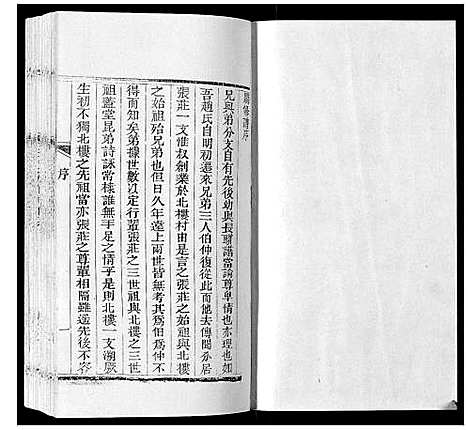 續修譜序
兄與弟分支自有先後幼與長序譜當論尊卑情也亦理也
吾趙氏自明初遷來兄弟三人伯仲復從此而他去傳聞分居
張莊一支惟叔創業於北樓村由是言之張莊之始祖與北樓
之始祖殆兄弟也但日久年遠上兩世皆無考其為伯為仲不
得而知矣弟據世數以定行輩張莊之三世祖與北樓之三世
祖蓋堂昆弟詩詠常棣誰無手足之情乎是則北樓一支溯厥
生初不獨北樓之先祖當亦張莊之尊輩相隔雖遠先後不容
序
一